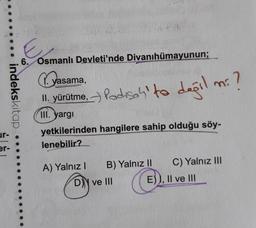 E
6. Osmanlı Devleti'nde Divanıhümayunun;
I. yasama,
II. yürütme, → Padişah'ta değil mi?
III. yargı
yetkilerinden hangilere sahip olduğu söy-
lenebilir?
A) Yalnız I B) Yalnız II C) Yalnız III
D) I ve III E) I, II ve III
indekskitap
ur-
er-